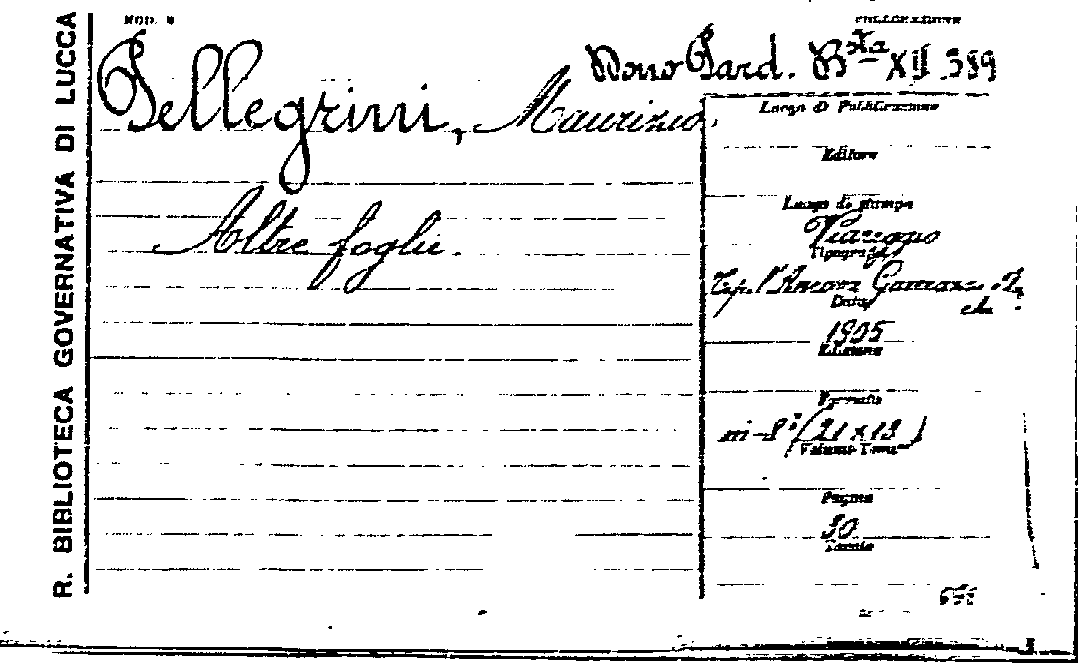 R. BIBLIOTECA GOVERNATIVA DI LUCCA
MOD.
COLLOCAZIONE
Dono Pard. Bsta XII 389
Pellegrini, Maurizio.
Altre foglie.
Luogo di Pubblicazione
Editore
Luogo di stampa
Viareggio
Tipografia
Tip. l'Ancora
Data
1905
Edizione
Formato
in-8° (21 x 13)
Volume-Tomo
Pagine
30
Tavole